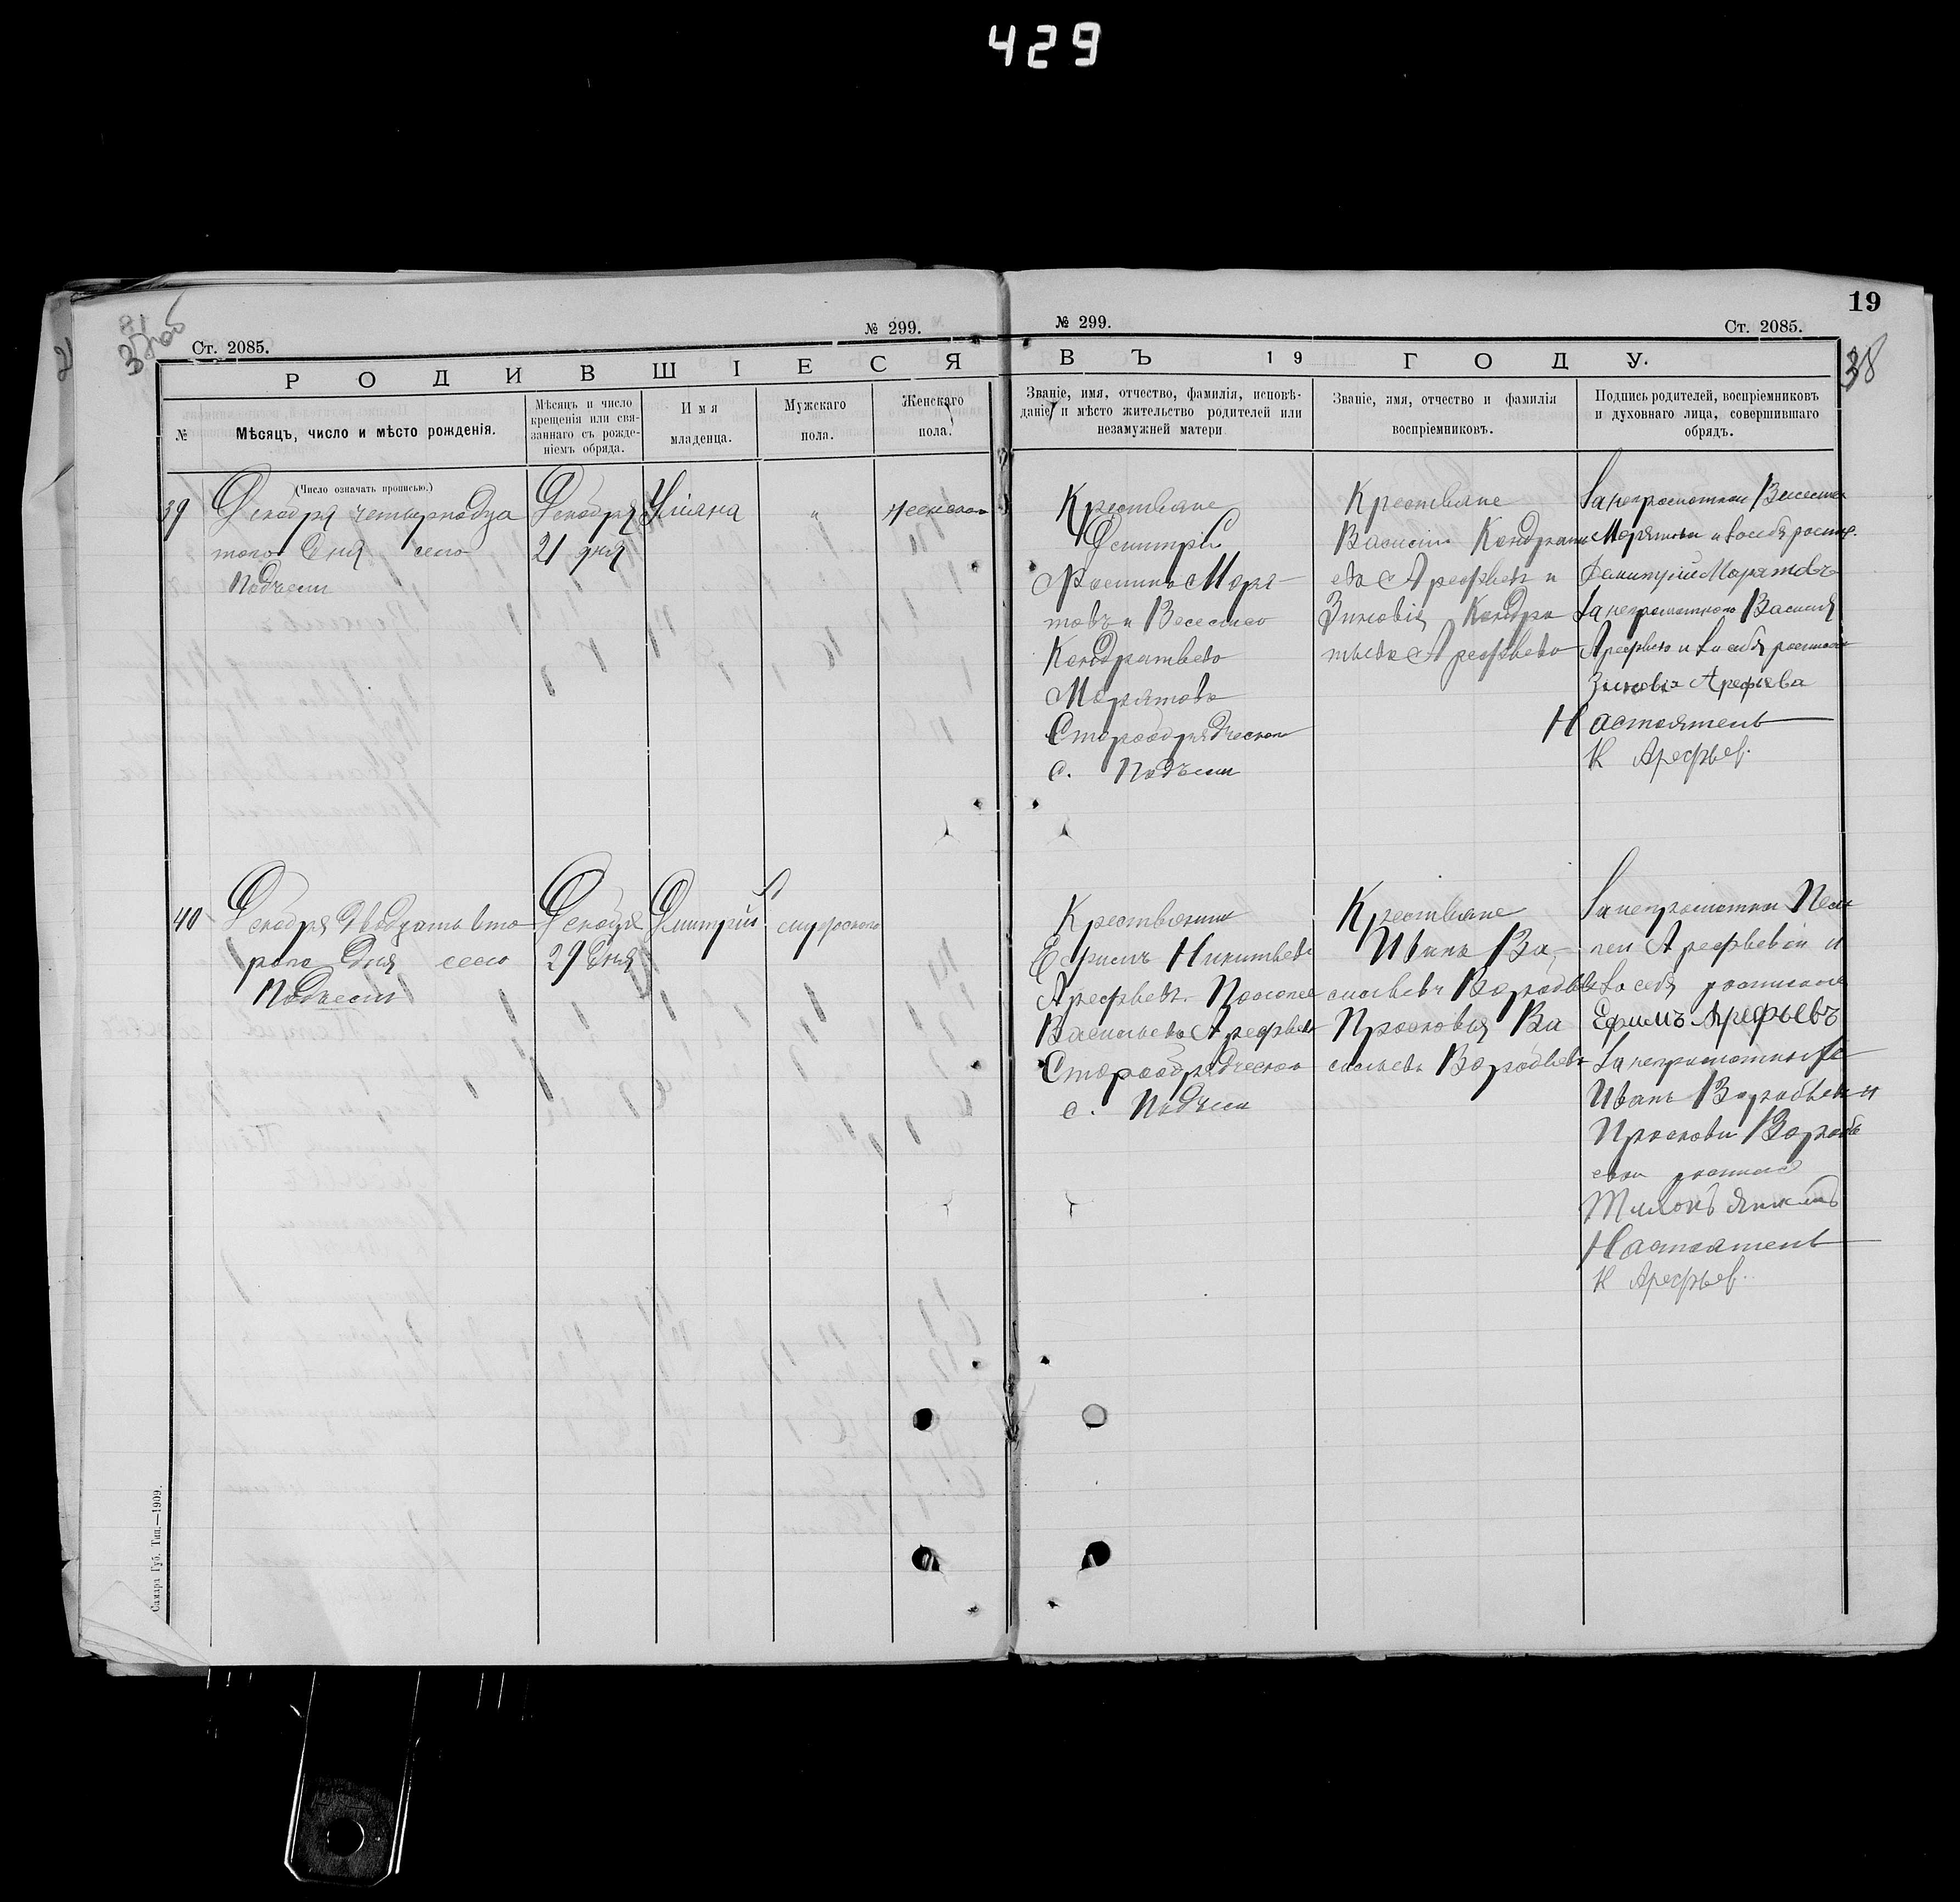 429
19
38
№ 299.
№ 299.
Ст. 2085.
Ст. 2085.
РОДИВШІЕСЯ
ВЪ 19 ГОДУ.
№
Мѣсяцъ, число и мѣсто рожденія.
Мѣсяцъ и число
крещенія или свя-
заннаго съ рожде-
ніемъ обряда.
Имя
младенца.
Мужскаго
пола.
Женскаго
пола.
Званіе, имя, отчество, фамилія, исповѣ-
даніе и мѣсто жительство родителей или
незамужней матери
Званіе, имя, отчество и фамилія
воспріемниковъ.
Подпись родителей, воспріемниковъ
и духовнаго лица, совершившаго
обрядъ.
(Число означать прописью.)
39
Декабря четырнадца
того дня село
Подъеми
Декабря
21 дня
Уліяна
"
женскаго
Крестьяне
Дмитрій
Моря-
товъ и
Кондратьево
Морятова
Старообрядческаго
с. Подъеми
Крестьяне
Василіи Кондрать
ева Арефьевъ и
Зиновія Кондра
тьева Арефьева
За неграмотной
Морятовой и за себя роспис.
Димитрій Марятовъ
За неграмотного Василія
Арефьева и за себя росписа
Зиновіа Арефева
Настоятель
К Арефьев.
40
Декабря двадцать вто
рого дня село
Подъеми
Декабря
29 дня
Дмитрій
мужскаго
Крестьянин
Ефимъ Никитьев
Арефьевъ
Васильева Арефьева
Старообрядческаго
с. Подъеми
Крестьяне
Иванъ Ва-
сильевъ Воробьев
Просковья Ва
сильева Воробьева
За неграмотной
Арефьевой и
за себя росписался
Ефимъ Арефьевъ
За неграмотных
Иванъ Воробьева и
Просковьи Воробь
евой
Настоятель
К Арефьев.
Самара Губ. Тип.—1909.